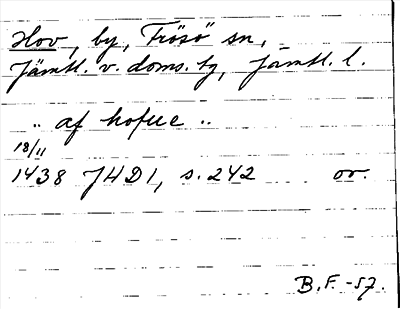 Hov, by, Frösö sn,
Jämtl. v. doms. tg, Jämtl. l.
.. af hofue ..
18/11
1438 JHD 1, s. 242 or.
B.F. -57.